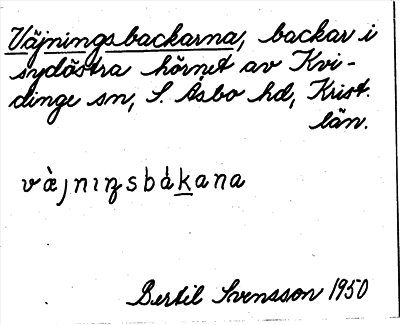 Väjningsbackarna, backar i
sydöstra hörnet av Kvi-
dinge sn, S. Åsbo hd, Krist.
län.
vàjnıŋsbákana
Bertil Svensson 1950